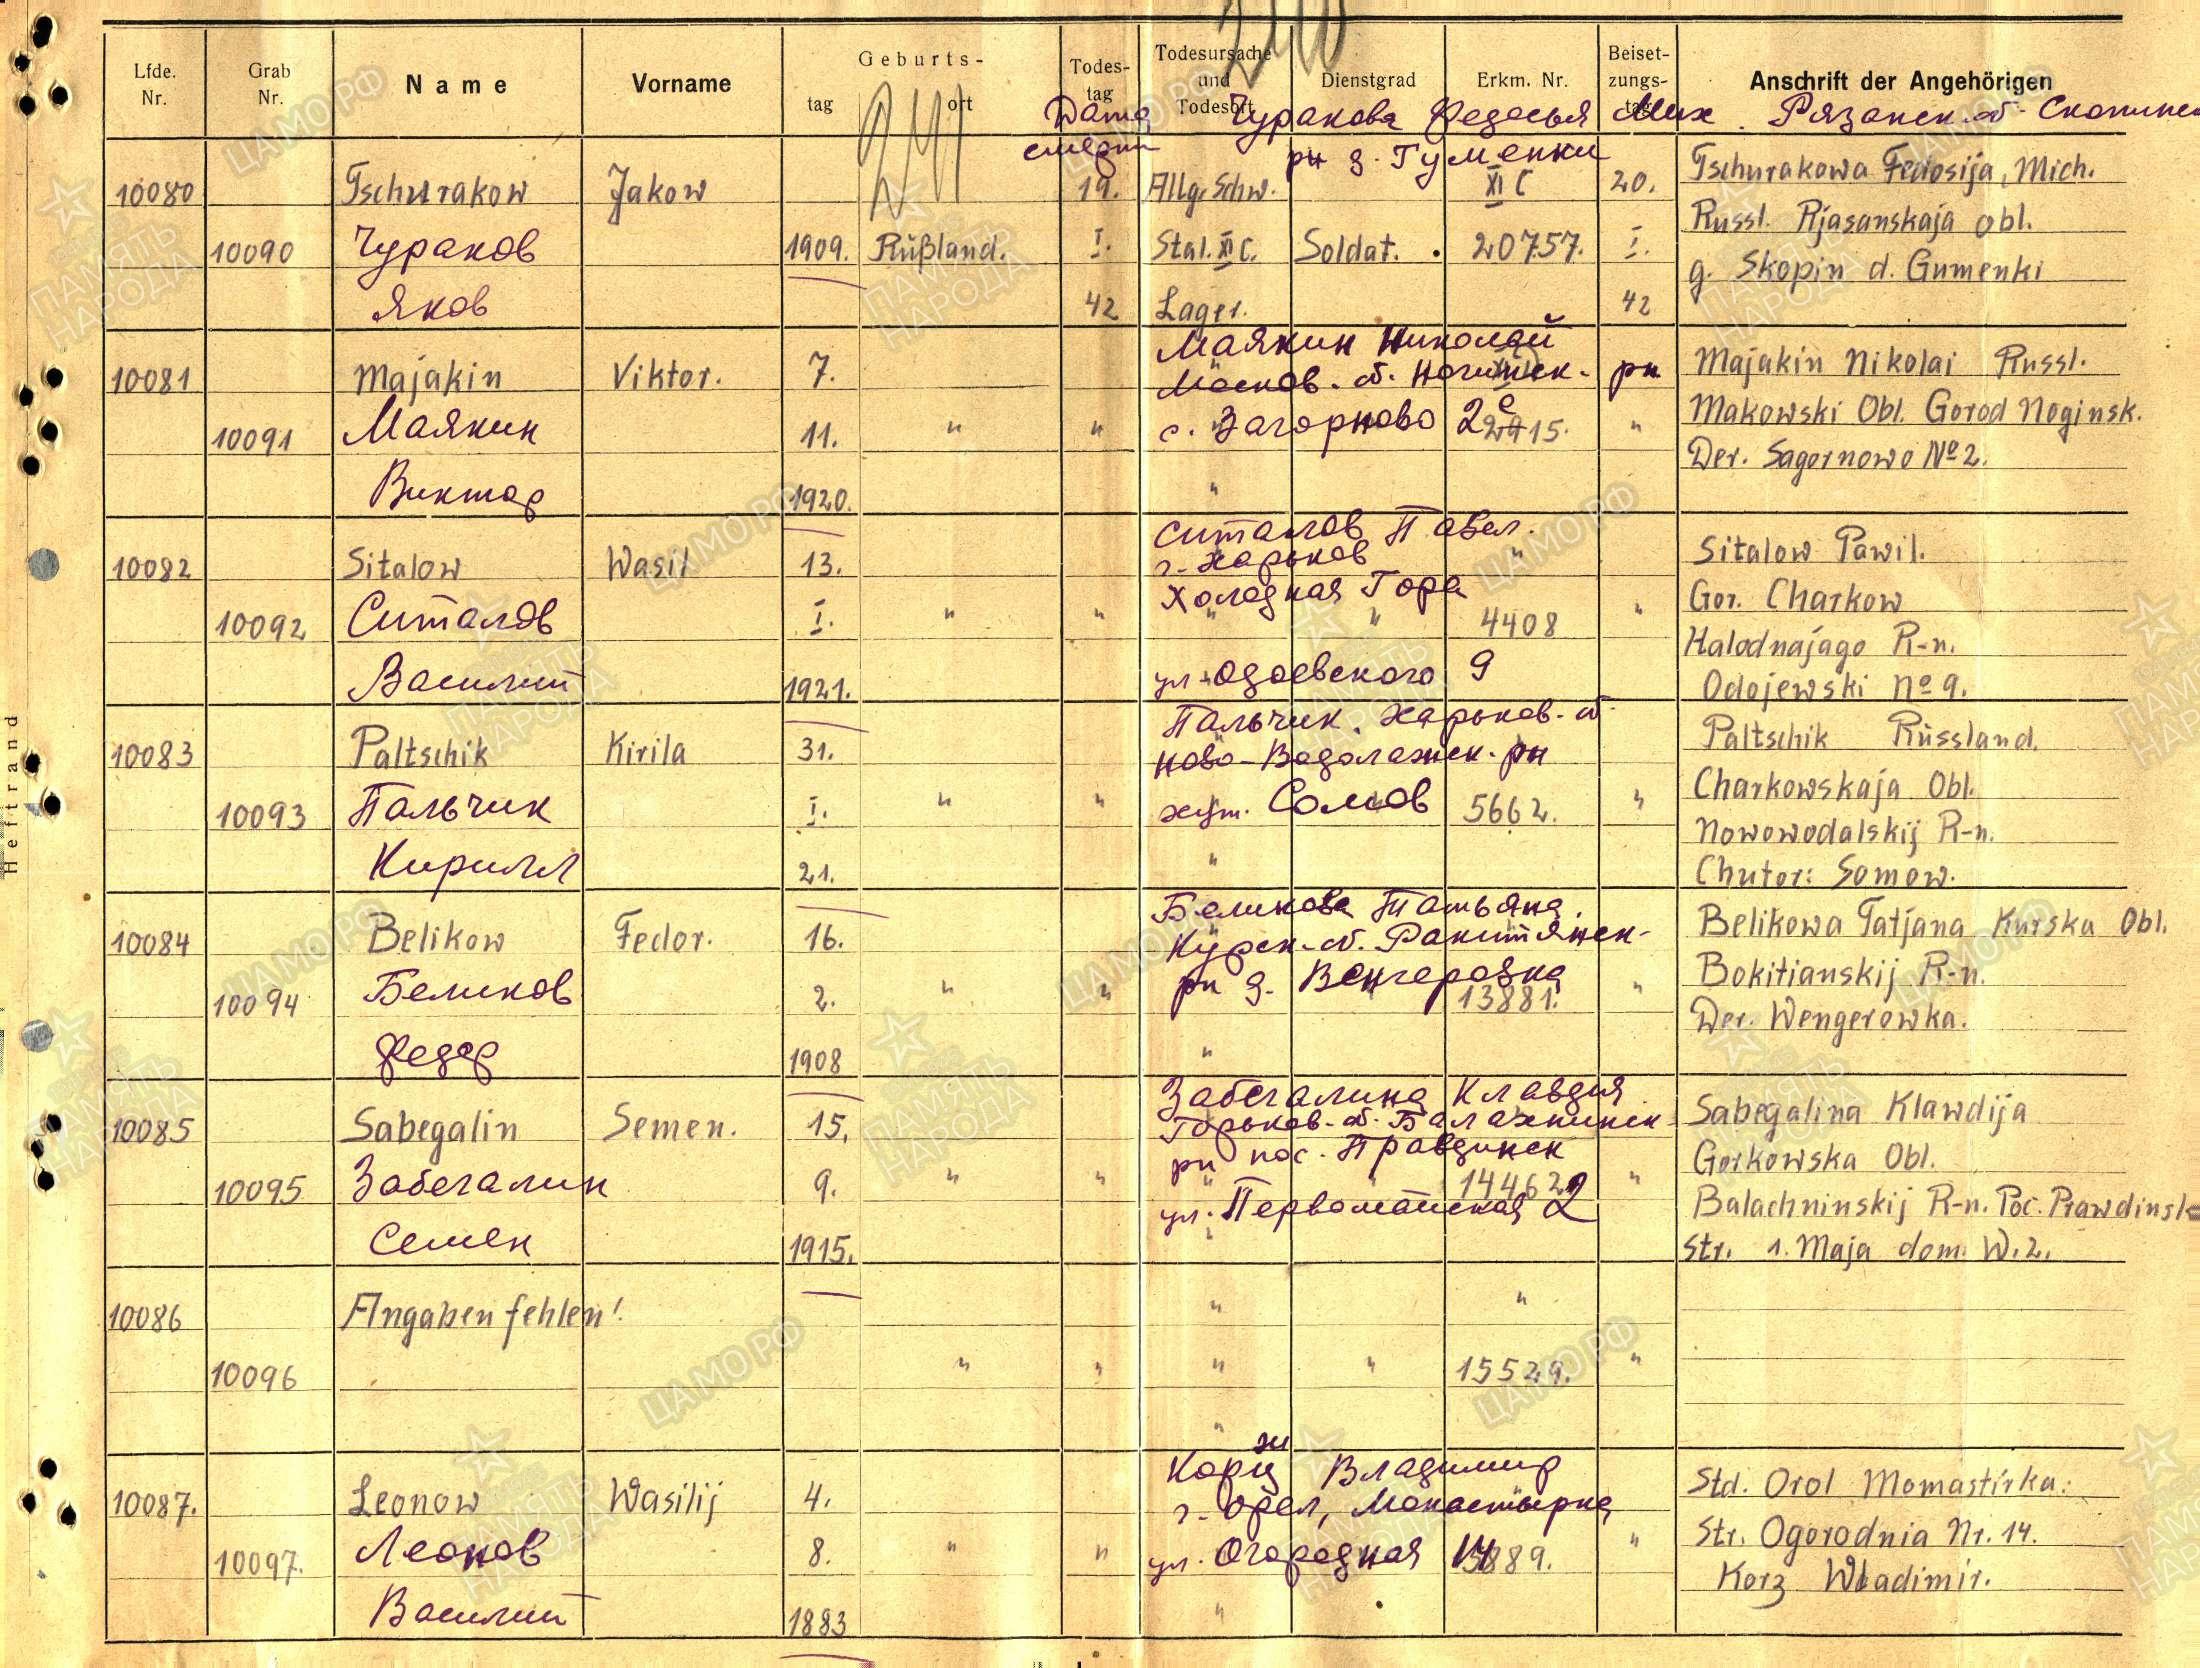 Lfde. Nr.
Grab Nr.
Name
Vorname
Geburts-
tag
ort
Todes-
tag
Todesursache
und
Todesort
Dienstgrad
Erkm. Nr.
Beiset-
zungs-
tag
Anschrift der Angehörigen
Дата
смерти
Чуракова Федосья Мих. Рязанск. об. Скопинск
рн д. Гуменки
10080 Tschurakow Jakow 19. Allg. Schw. XI C 20. Tschurakowa Fedosija, Mich.
Russl. Rjasanskaja obl.
10090 Чураков 1909. Rußland. I. Stal. XI C. Soldat. 20757. I.
g. Skopin d. Gumenki
Яков 42 Lager. 42
Маякин Николай
10081 Majakin Viktor. 7. Majakin Nikolai Russl.
Москов. об. Ногинск. рн
Makowski Obl. Gorod Noginsk.
10091 Маякин 11. " " с. Загорново 2е 15. "
Der. Sagornowo № 2.
Виктор 1920. "
Ситалов Павел.
10082 Sitalow Wasil 13. г. Харьков " Sitalow Pawil.
Холодная Гора
Gor. Charkow
10092 Ситалов I. " " " " 4408 "
Halodnajago R-n.
Василий 1921. ул. Одоевского 9 Odojewski № 9.
Пальчик. Харьков. об.
10083 Paltschik Kirila 31. Ново-Водолажск. рн Paltschik Rüssland.
Charkowskaja Obl.
10093 Пальчик I. " " хут. Сомов 5662. "
Nowowodalskij R-n.
Кирилл 21. " Chutor: Somow.
Беликова Татьяна.
10084 Belikow Fedor. 16. Курск. об. Ракитянск- Belikowa Tatjana Kurska Obl.
Bokitianskij R-n.
10094 Беликов 2. " " рн д. Венгеровка 13881. "
Der. Wengerowka.
Федор 1908 "
Забегалина Клавдия
10085 Sabegalin Semen. 15. Горьков. об. Балахнинск- Sabegalina Klawdija
рн пос. Правдинск
Gorkowska Obl.
10095 Забегалин 9. " " " " 14462 "
ул. Первомайская 2 Balachninskij R-n. Poc. Prawdinsk
Семен 1915. " Str. 1. Maja dom. W. 2.
10086 Angaben fehlen! " "
10096 " " " " 15529. "
"
ж
Корц Владимир
10087. Leonow Wasilij 4. г. Орел, Монастырка Std. Orol Momastirka.
Str. Ogorodnia Nr. 14.
10097. Леонов 8. " " ул. Огородная 14 889. "
Korz Wladimir.
Василий 1883 "
Heftrand
ЦАМО РФ
ПАМЯТЬ НАРОДА